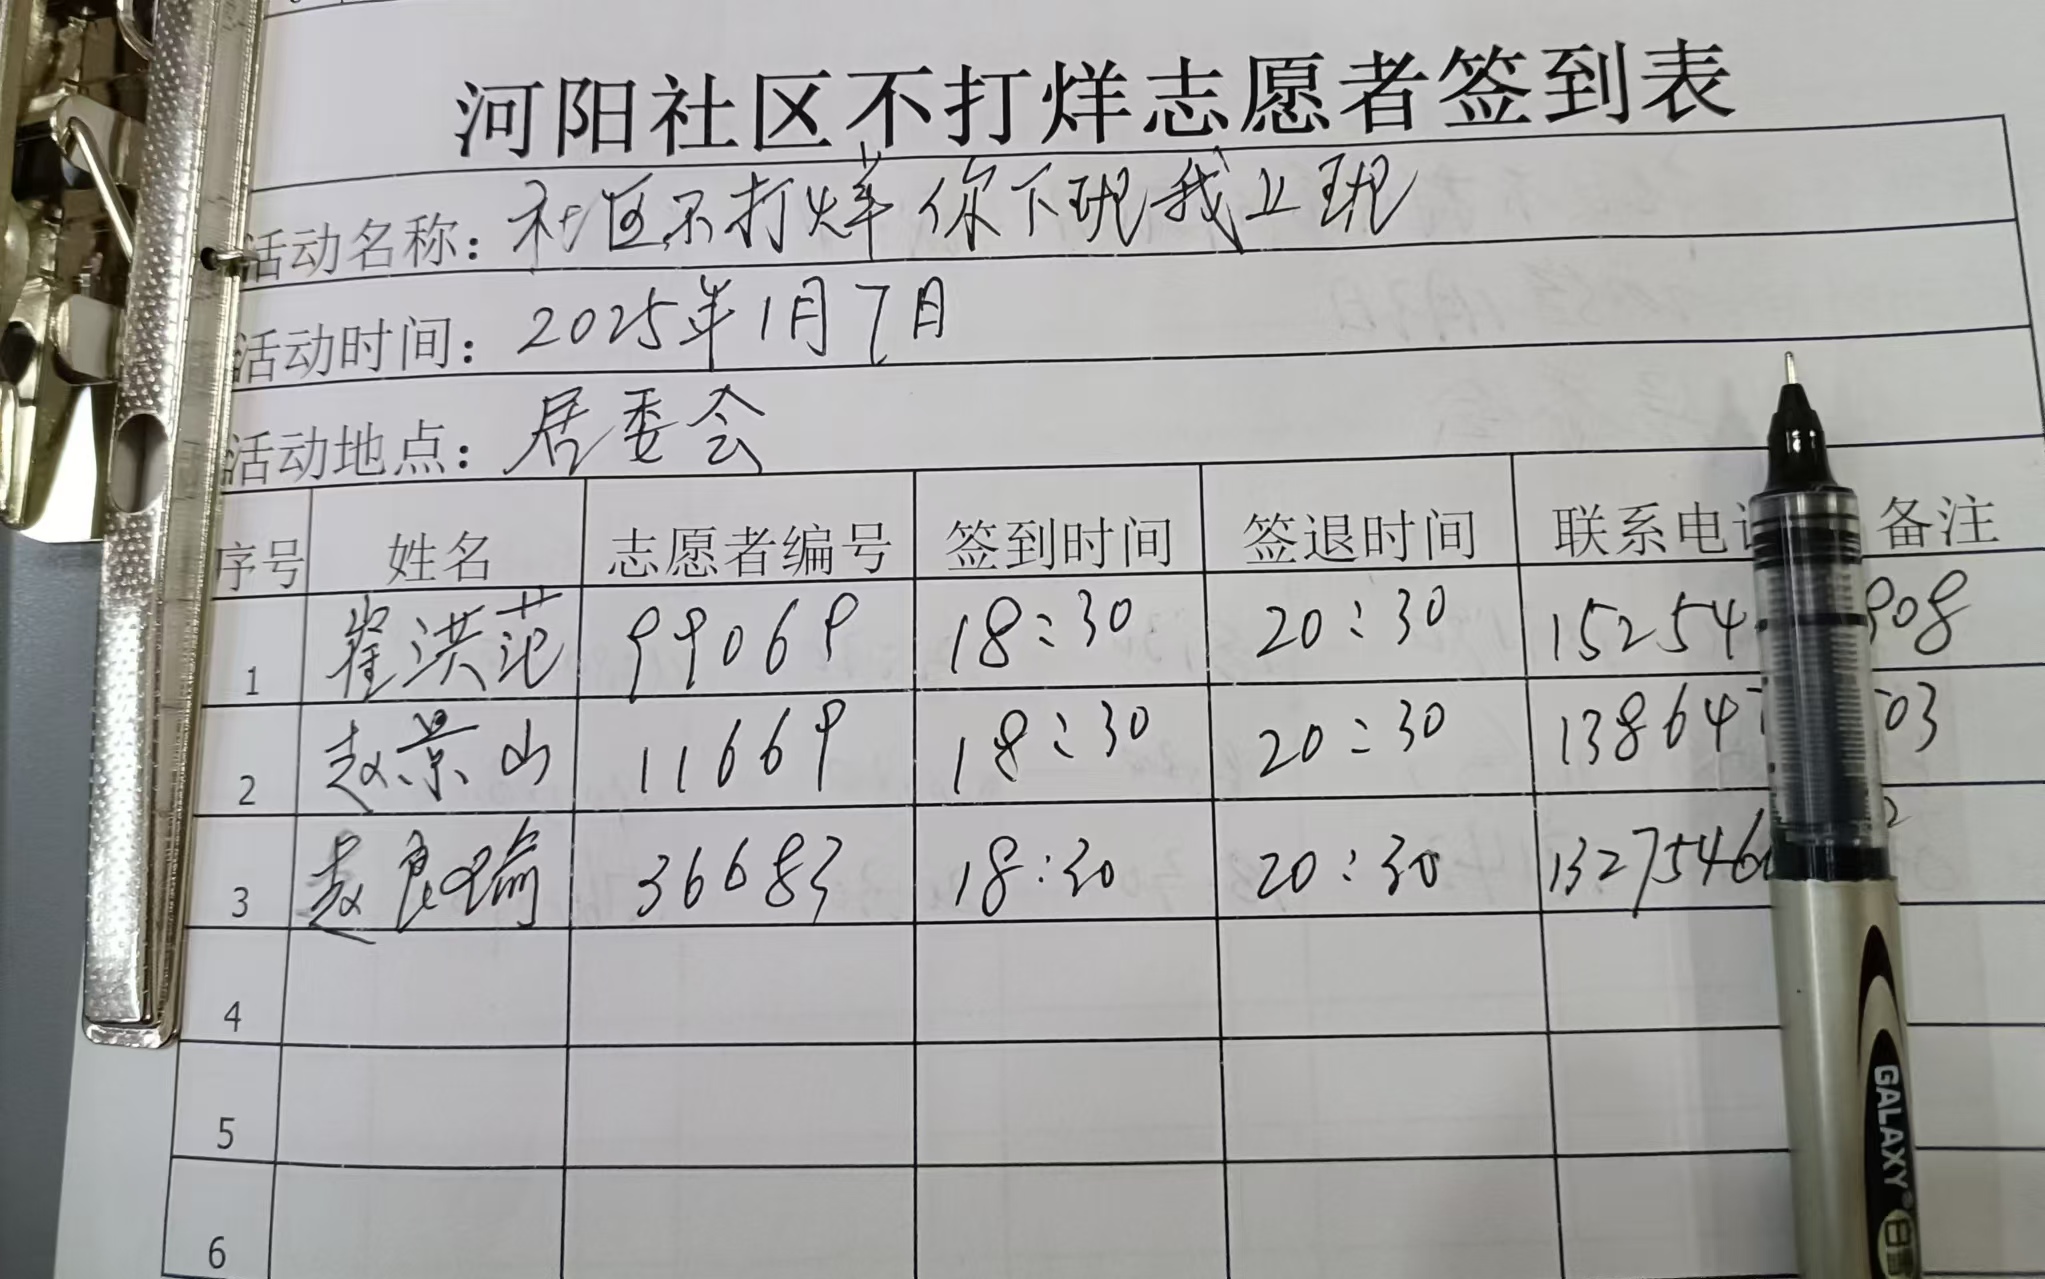 河阳社区不打烊志愿者签到表
活动名称：社区不打烊 你下班我上班
活动时间：2025年1月7日
活动地点：居委会
序号 姓名 志愿者编号 签到时间 签退时间 联系电 备注
1 崔洪范 99069 18:30 20:30 15254 908
2 赵景山 11669 18:30 20:30 13864 03
3 赵良瑜 36683 18:30 20:30 1327546 2
4
5
6
GALAXY